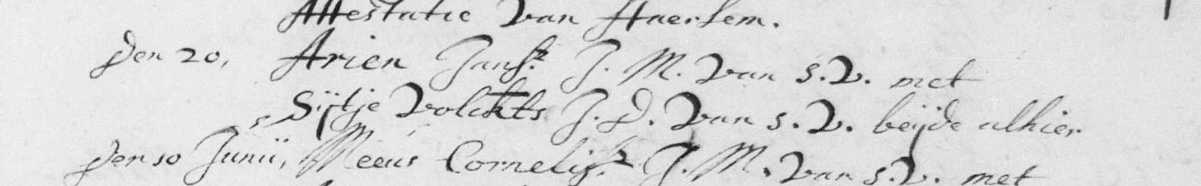 Attestatie Van Haerlem.
den 20, Arien Jansz. J. M. Van S. V. met
Sijtje Volckts J. D. Van S. V. beijde alhier
den 10 Junii, Meeus Cornelisz. J. M. Van S. V. met